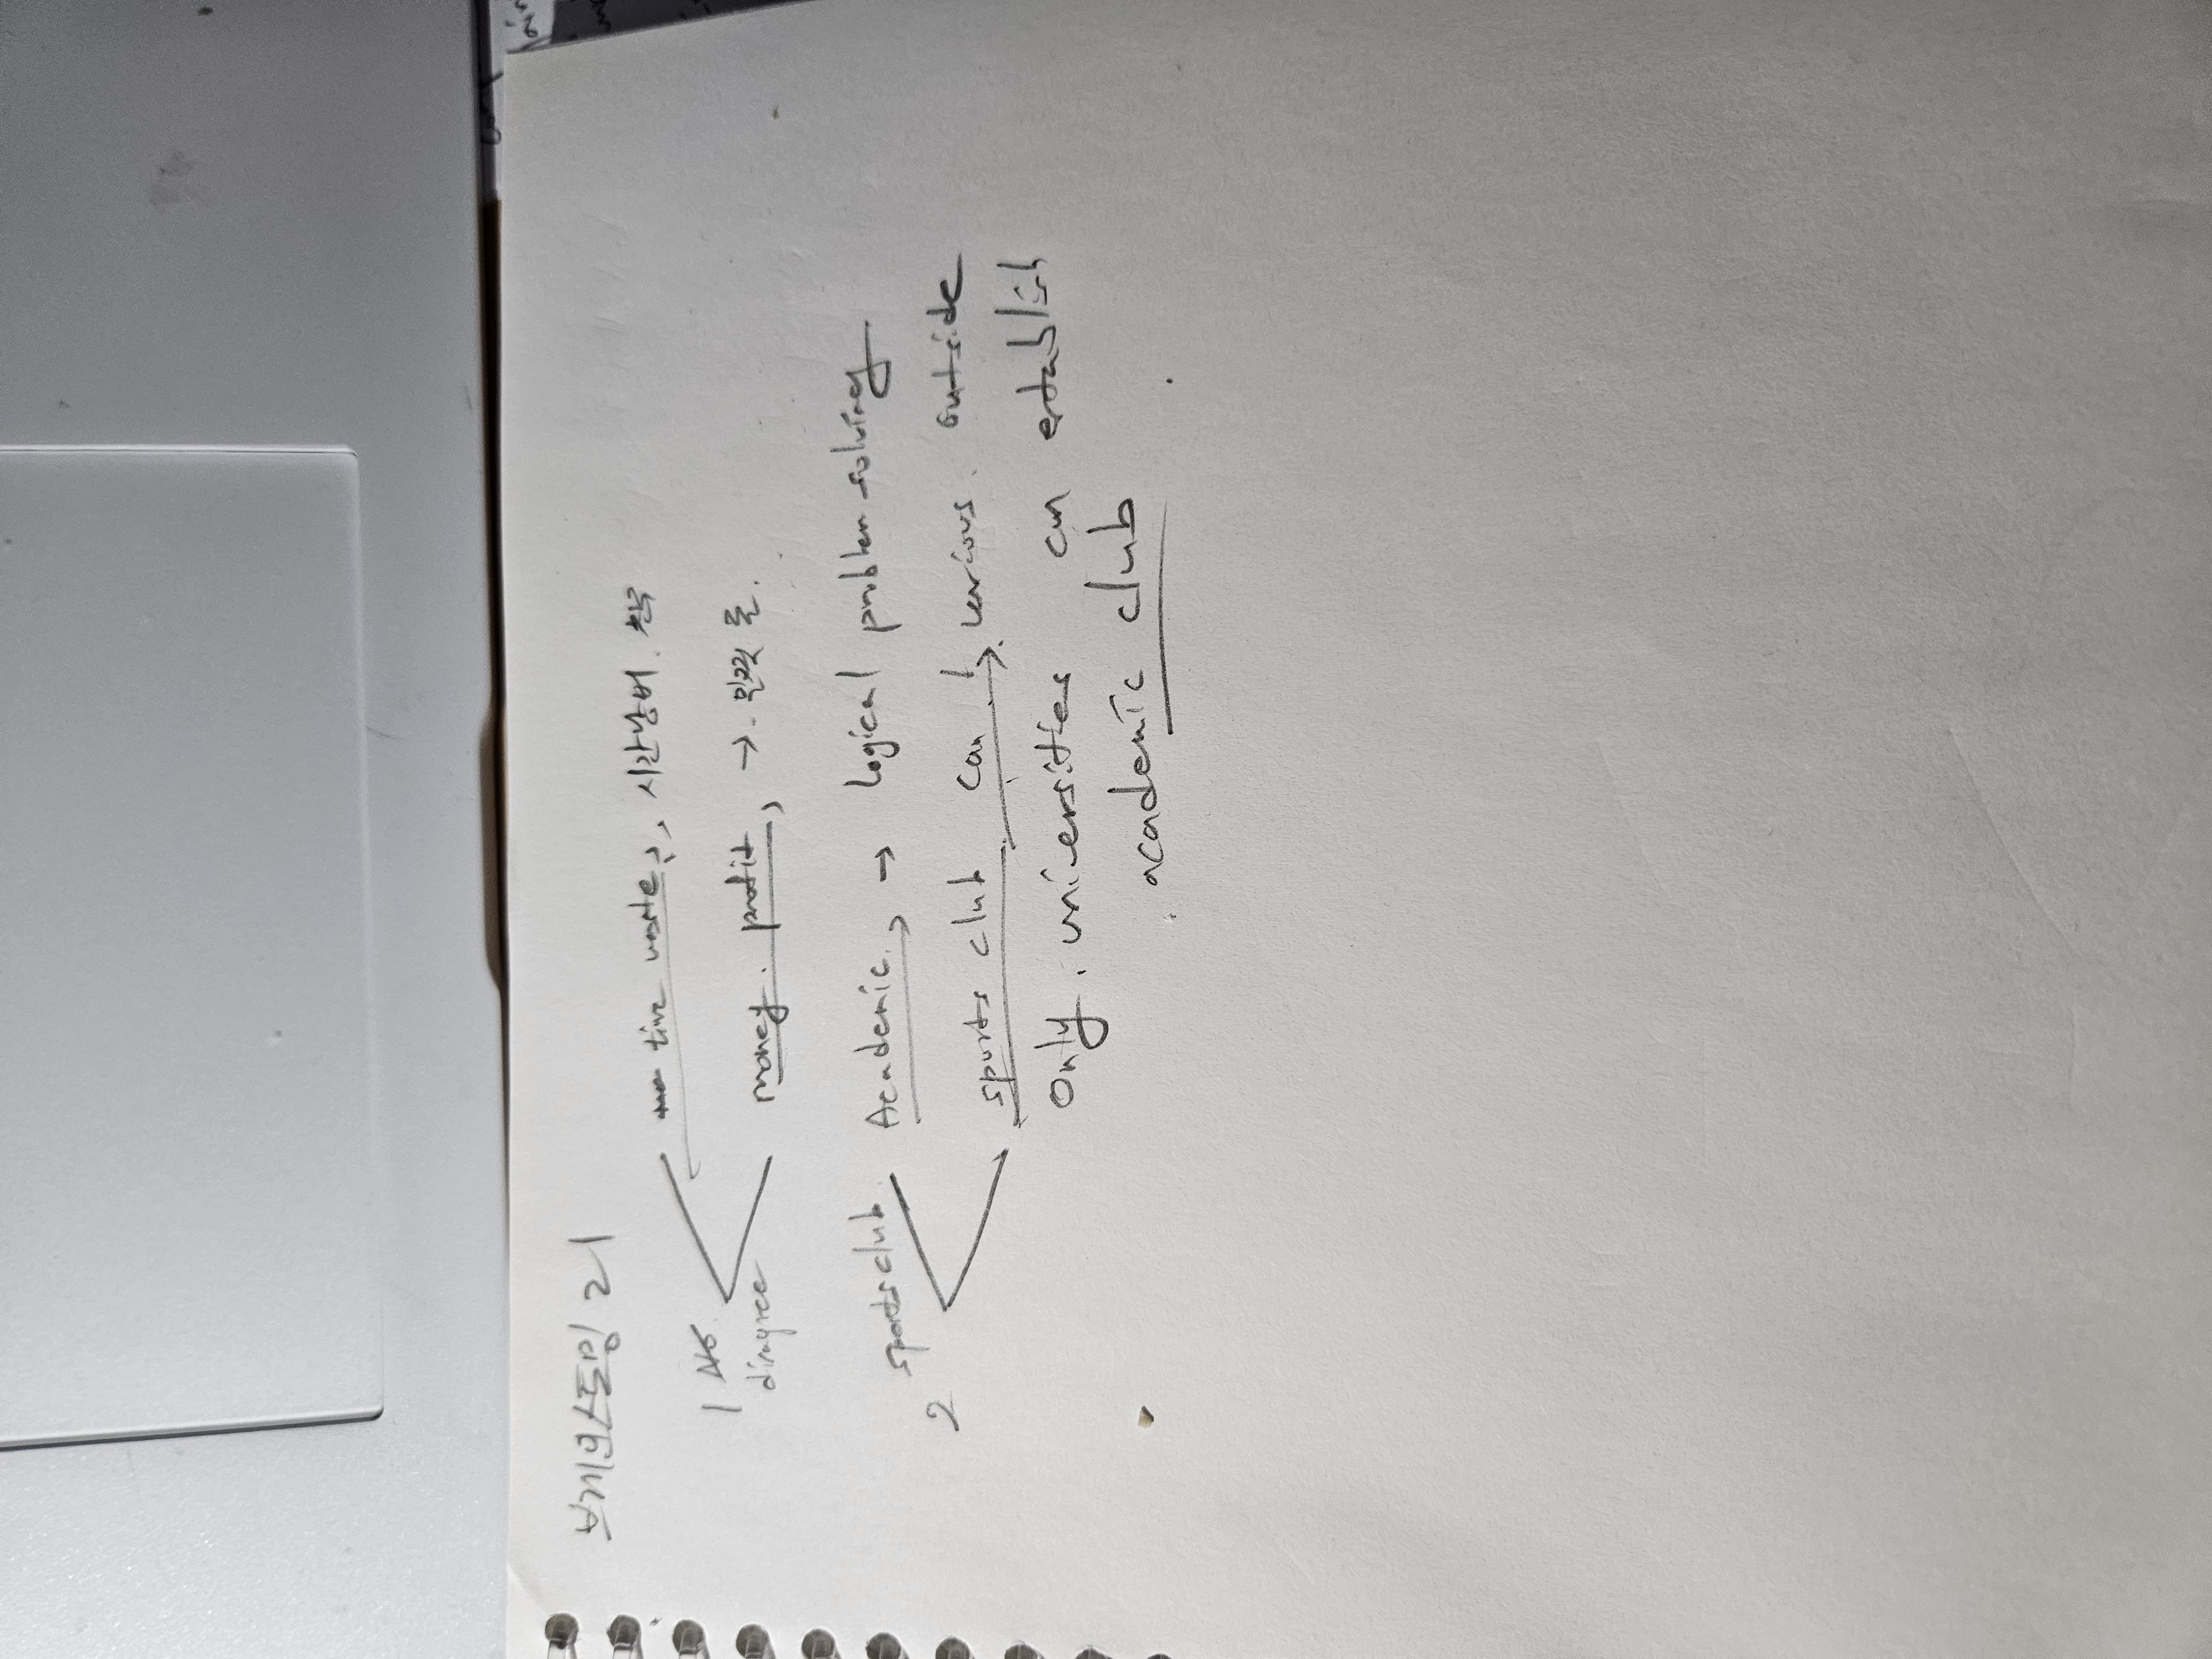 브레인스토밍 21
1 No. time waste, 시간낭비. 친구
disagree money. profit, → .인적 풀.
2 sports club. Academic, → logical problem solving
sports club can → various. outside
Only, universities can establish
academic club